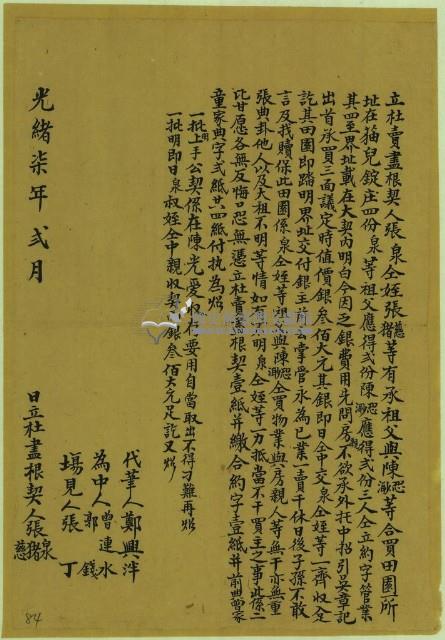 立杜賣盡根契人張泉仝姪張慈猪等有承祖父與陳恐泖等合買田園所
址在貓兒錠庄四份泉等祖父應得弍份陳恐泖應得弍份三人仝立約字管業
其四至界址載在大契內明白今因乏銀費用先問房親不欲承外托中招引吳章記
出首承買三面議定時值價銀叁佰大元其銀即日仝中交泉仝姪等一齊收足
訖其田園即踏明界址交付銀主前去掌管永為己業一賣千休日後子孫不敢
言及找贖保此田園係泉仝姪等 與陳恐泖仝買物業與房親人等無干亦無重
張典掛他人以及大租不明等情如有不明泉仝姪等一力抵當不干買主之事此係二
比甘愿各無反悔口恐無憑立杜賣盡根契壹紙并繳合約字壹紙并前典曾家
童家典字弍紙共四紙付执為炤
一批明上手公契係在陳光愛 要用自當取出不得刁難再炤
一批明即日泉叔姪仝中親收契 銀叁佰大元足訖又炤
代筆人鄭興泮
為中人曾連水
郭錢
塲見人張丁
光緒柒年弍月 日立杜賣盡根契人張泉猪慈
84